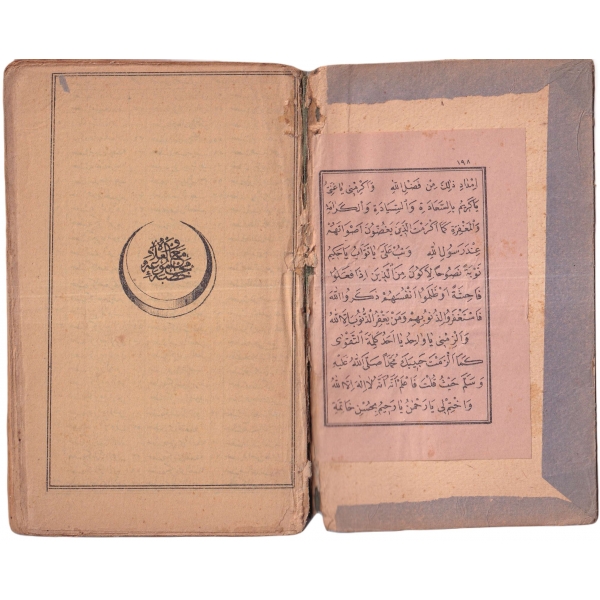 ١٩٨
إمداد ذلك من فضل الله وأكرمني يا غني
يا كريم بالسعادة والسيادة والكرامة
والمغفرة كما أكرمت الذين يغضون أصواتهم
عند رسول الله وتب علي يا تواب يا حكيم
توبة نصوحا لأكون من الذين إذا فعلوا
فاحشة أو ظلموا أنفسهم ذكروا الله
فاستغفروا لذنوبهم ومن يغفر الذنوب إلا الله
وألزمني يا واحد يا أحد كلمة التقوى
كما ألزمت حبيبك محمدا صلى الله عليه
وسلم حيث قلت فاعلم أنه لا إله إلا الله
واختم لي يا رحمن يا رحيم بحسن خاتمة
مجموعه
خطبه